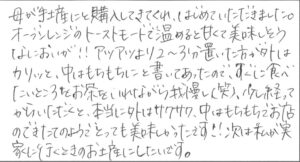 母が手土産にと購入してきてくれ、はじめていただきました。
オーブンレンジのトーストモードで温めると甘くて美味しそう
なにおいが!!アツアツより2〜3分置いた方が外は
カリッと、中はもちもちにと書いてあったので、すぐに食べ
たいところをお茶をいれながら我慢し(笑)、少し経って
からいただくと、本当に外はサクサク、中はもちもちでお店
のできたてのようでとっても美味しかったです!!次は私が実
家に行くときのお土産にしたいです。